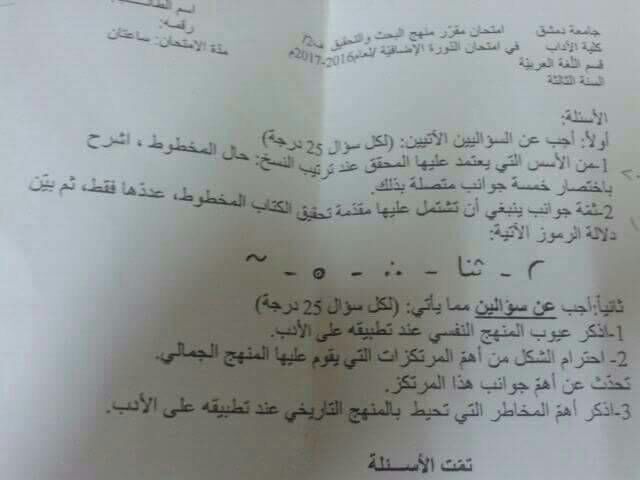 جامعة دمشق
كلية الآداب
قسم اللغة العربيّة
السنة الثالثة
امتحان مقرّر منهج البحث والتحقيق ف2/
في امتحان الدورة الإضافيّة /لعام2016-2017م
اسم
رقمه:
مدة الامتحان: ساعتان
الأسئلة:
أولاً: أجب عن السؤاليين الآتيين: (لكل سؤال 25 درجة)
1-من الأسس التي يعتمد عليها المحقق عند ترتيب النسخ: حال المخطوط ، اشرح
باختصار خمسة جوانب متصلة بذلك.
2-ثمّة جوانب ينبغي أن تشتمل عليها مقدّمة تحقيق الكتاب المخطوط، عددّها فقط، ثم بيّن
دلالة الرموز الآتية:
م - ثنا - ∴ - ⊙ - ~
ثانياً:أجب عن سؤالين مما يأتي: (لكل سؤال 25 درجة)
1-اذكر عيوب المنهج النفسي عند تطبيقه على الأدب.
2- احترام الشكل من أهمّ المرتكزات التي يقوم عليها المنهج الجمالي.
تحدّث عن أهمّ جوانب هذا المرتكز.
3-اذكر أهمّ المخاطر التي تحيط بالمنهج التاريخي عند تطبيقه على الأدب.
تمّت الأسئلة